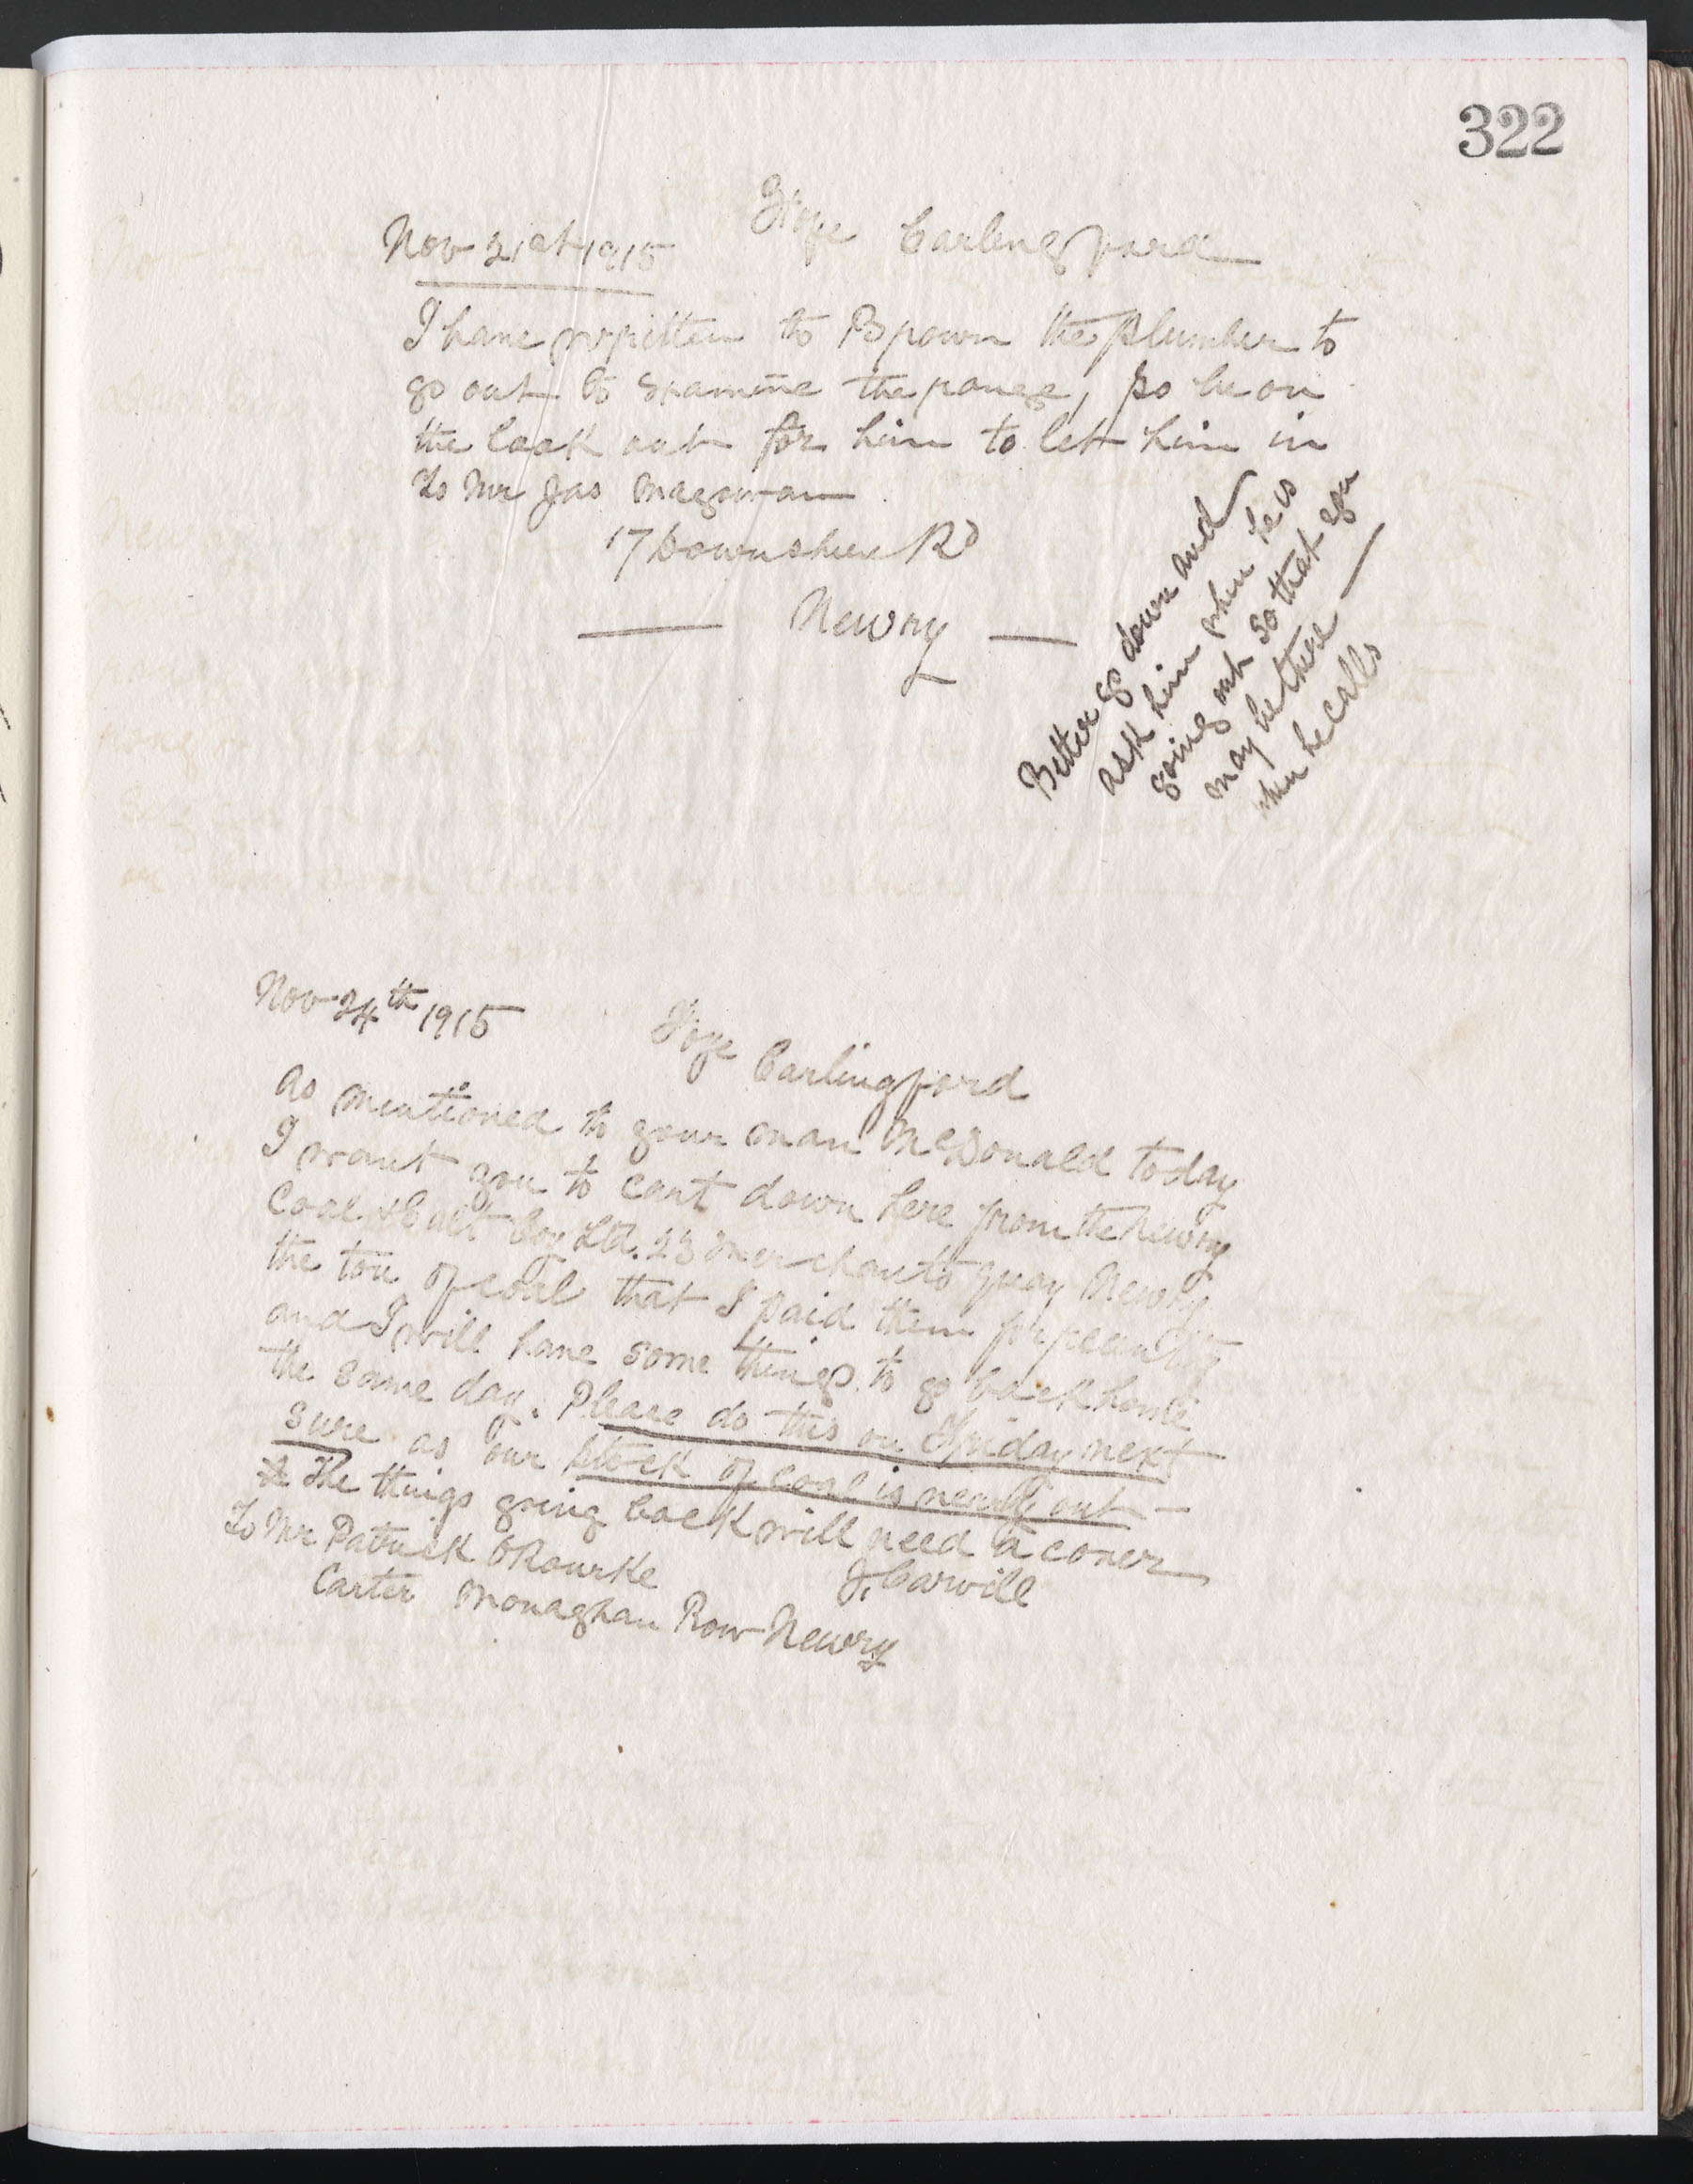 322
Nov 21st 1915 Foye Carlingford
I have written to Brown the Plumber to
go out to examine the range, so be on
the look out for him to let him in
To Mr Jas Magowan
17 Downshire Rd
Newry
Better go down and
ask him when he is
going out so that you
may be there
when he calls
Nov 24th 1915 Foye Carlingford
As mentioned to your man McDonald today
I want you to cart down here from the Newry
Coal & Salt Coy Ltd. 23 Merchants Quay Newry
the ton of coal that I paid them for
and I will have some things to go back home
the same day. Please do this on Friday next
sure as our stock of coal is nearly out —
The things going back will need a cover
To Mr Patrick O'Rourke J. Carvill
Carter Monaghan Row Newry